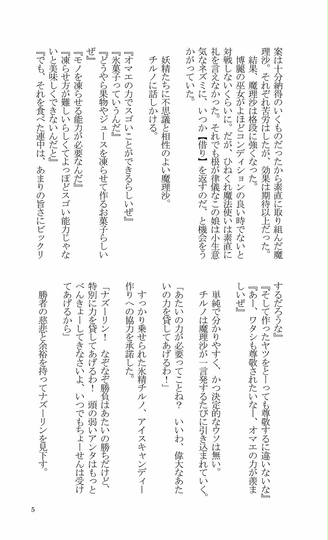 案は十分納得のいくものだったから素直に取り組んだ魔
理沙。それぞれ苦労はしたが、効果は期待以上だった。
結果、魔理沙は格段に強くなった。
博麗の巫女がよほどコンディションの良い時でないと
対戦しないくらいに。だが、ひねくれ魔法使いは素直に
礼を言えなかった。それでも根が律儀なこの娘は小生意
気なネズミに、いつか【借り】を返すのだ、と機会をう
かがっていた。
妖精たちに不思議と相性のよい魔理沙。
チルノに話しかける。
『オマエの力でスゴいことができるらしいぜ』
『氷菓子っていうんだ』
『どうやら果物やジュースを凍らせて作るお菓子らしい
ぜ』
『モノを凍らせる能力が必要なんだ』
『凍らせ方が難しいらしくてよっぽどスゴい能力じゃな
いと美味しくできないんだと』
『でも、それを食べた連中は、あまりの旨さにビックリ
するだろうな』
『そして作ったヤツをとーっても尊敬するに違いないな』
『あー、ワタシも尊敬されたいなー、オマエの力が羨ま
しいぜ』
単純で分かりやすく、かつ決定的なウソは無い。
チルノは魔理沙が一言発するたびに引き込まれていく。
「あたいの力が必要ってことね？　いいわ、偉大なあた
いの力を貸してあげるわ！」
すっかり乗せられた氷精チルノ、アイスキャンディー
作りへの協力を承諾した。
「ナズーリン！　なぞなぞ勝負はあたいの勝ちだけど、
特別に力を貸してあげるわ！　頭の弱いアンタはもっと
べんきょーしてきなさいよ、いつでもちょーせんは受け
てあげるから」
勝者の慈悲と余裕を持ってナズーリンを見下す。
5